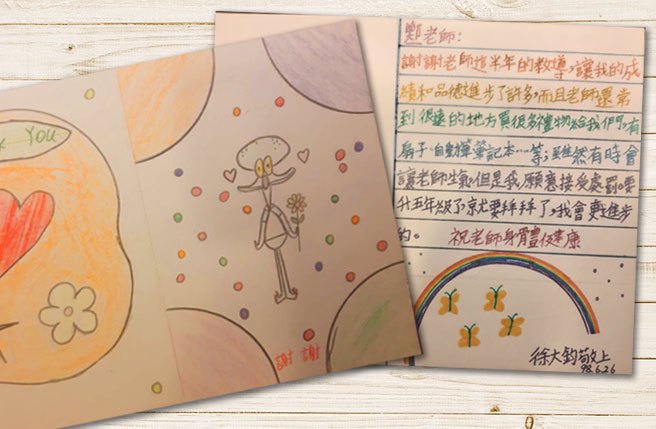 YOU
謝 謝
老師:
謝謝老師這半年的教導,讓我的成
績和品德進步了許多,而且老師還常
到很遠的地方買很多禮物給我們,有
扇子、自動彈簧記本…等,雖然有時會
讓老師生氣,但是我願意接受處罰。要
升五年級了,就要拜拜了,我會更進步
的。 祝老師身體健康
徐大鈞敬上
98.6.26